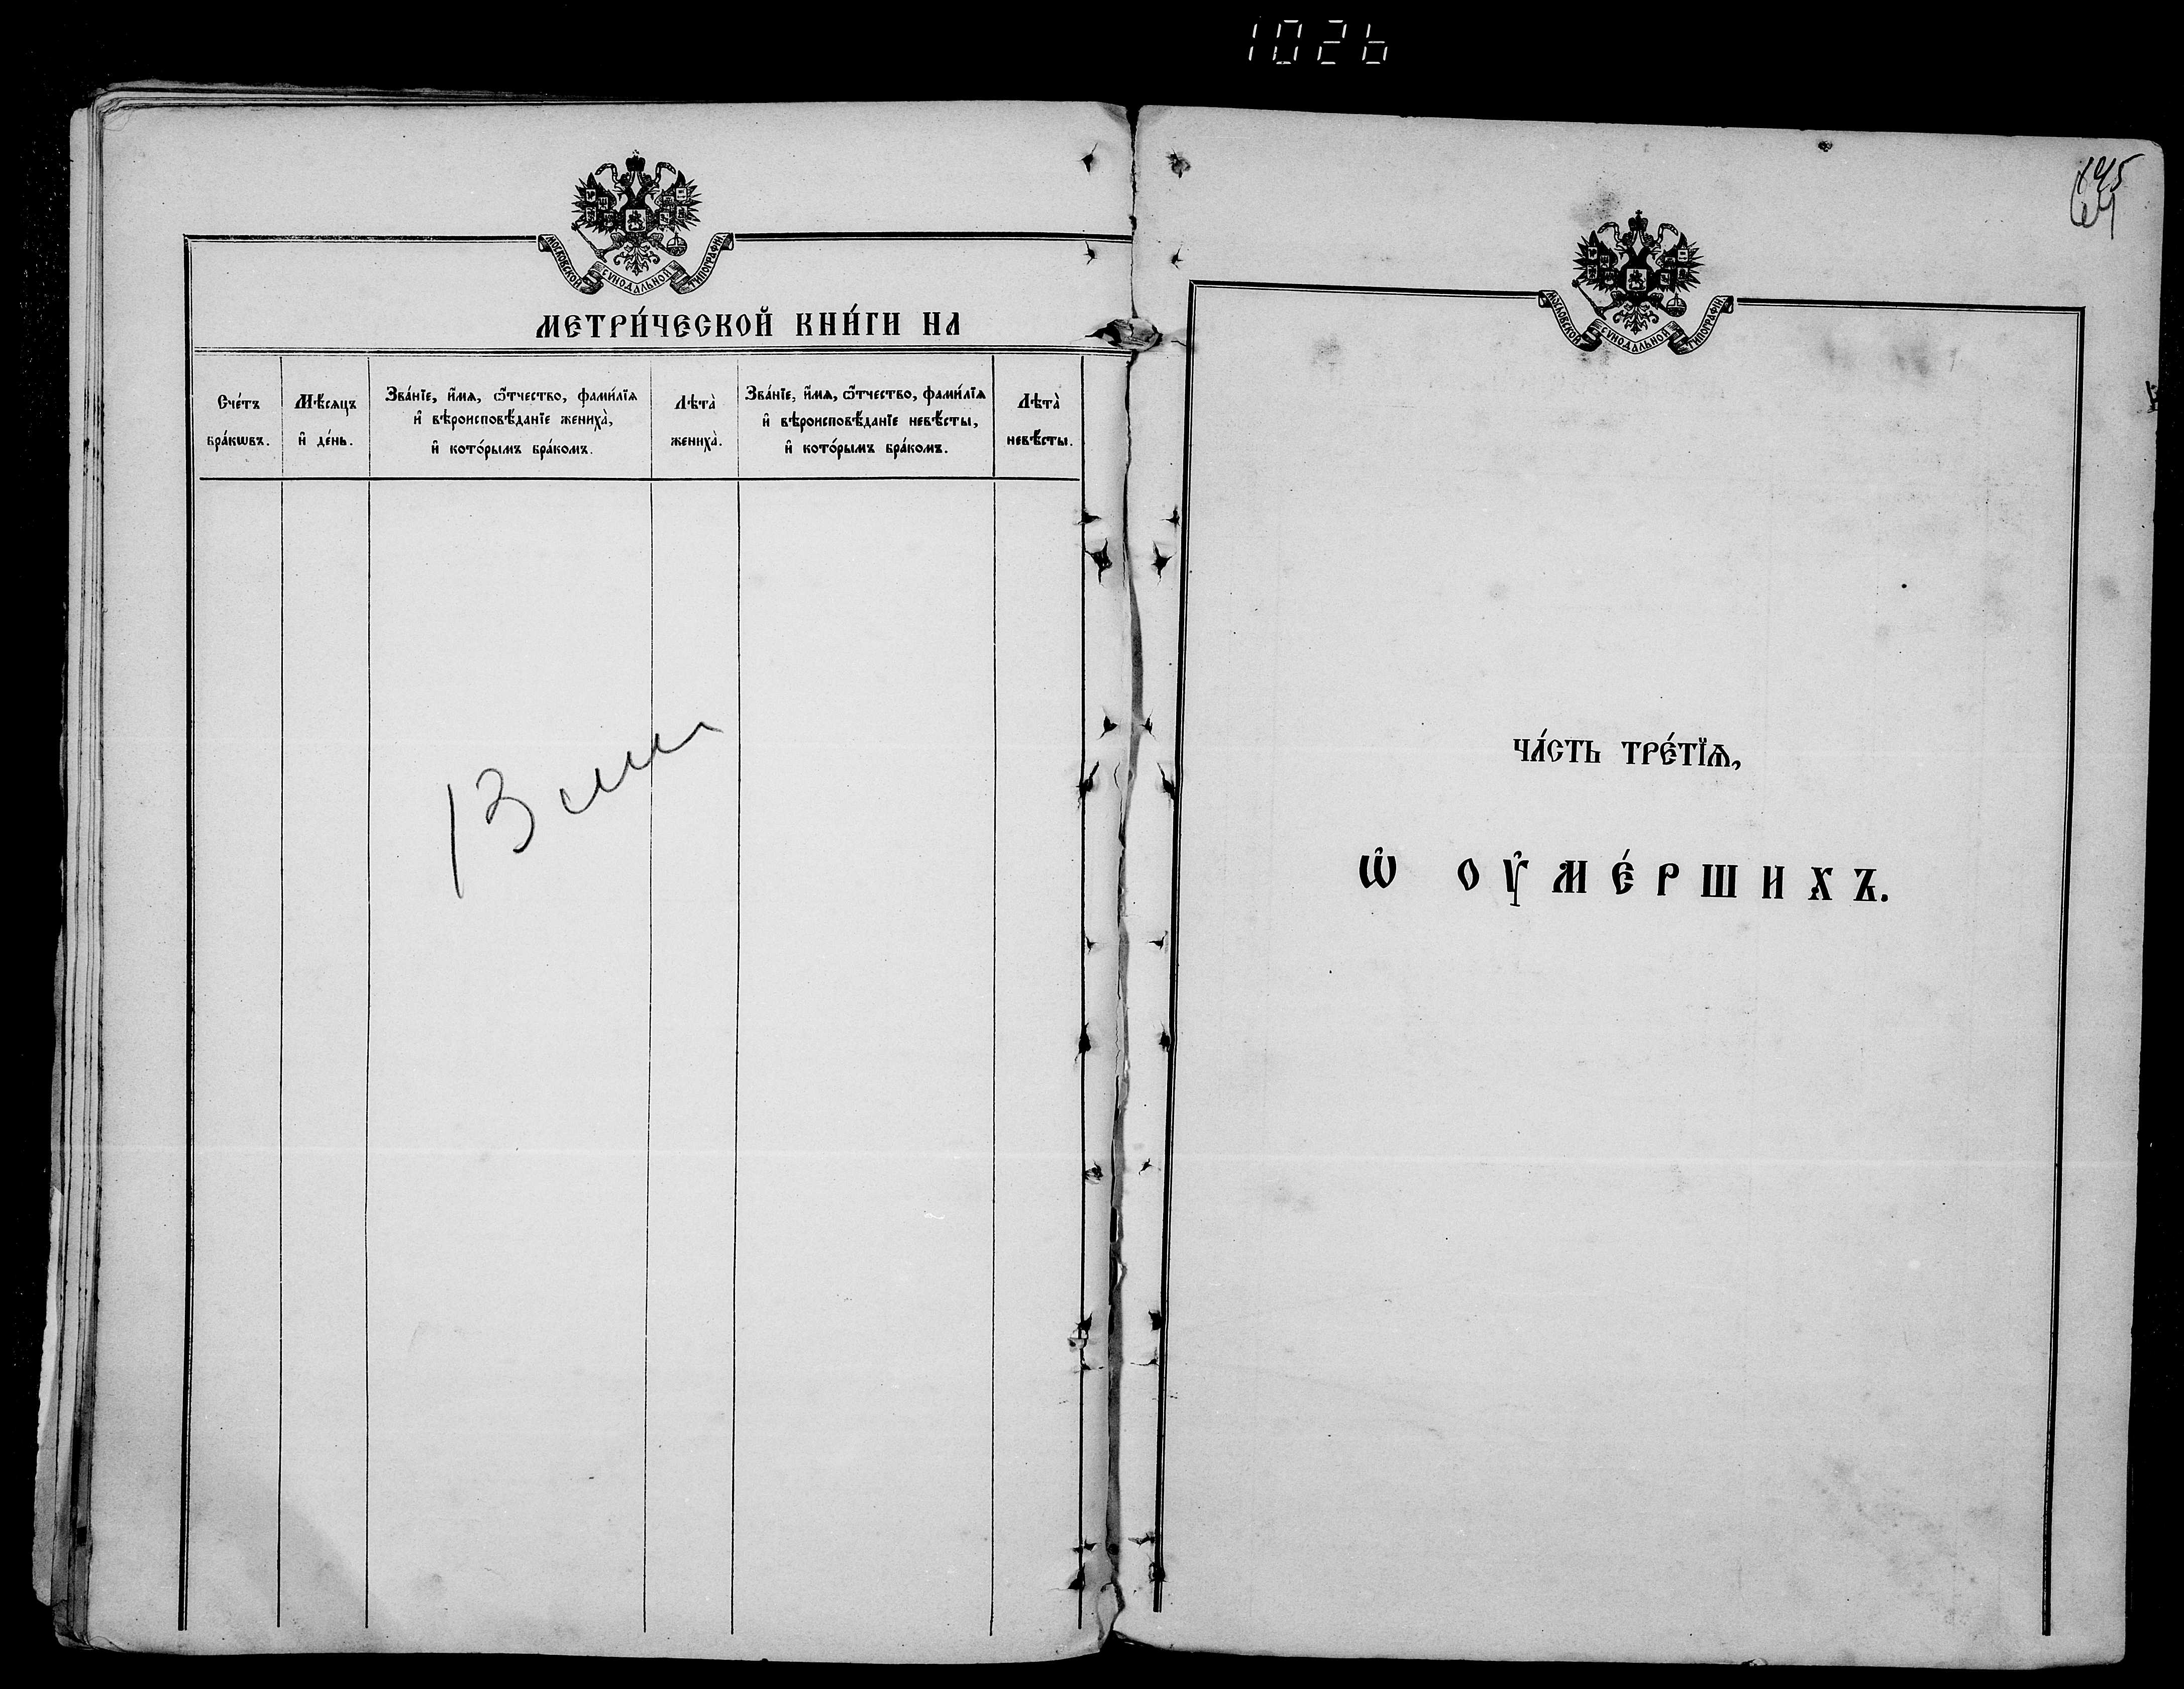 1026
МОСКОВСКОЙ СѴНОДАЛЬНОЙ ТИПОГРАФІИ
МЕТРИ́ЧЕСКОЙ КНИ́ГИ НА
Сче́тъ бра́кѡвъ.
Мѣ́сяцъ и҆ де́нь.
Зва́нїе, и҆́мѧ, ѻ҆́тчество, фами́лїѧ
и҆ вѣроисповѣ́данїе жениха̀,
и҆ кото́рымъ бра́комъ.
Лѣта̀ жениха̀.
Зва́нїе, и҆́мѧ, ѻ҆́тчество, фами́лїѧ
и҆ вѣроисповѣ́данїе невѣ́сты,
и҆ кото́рымъ бра́комъ.
Лѣта̀ невѣ́сты.
13
МОСКОВСКОЙ СѴНОДАЛЬНОЙ ТИПОГРАФІИ
ЧА́СТЬ ТРЕ́ТЇѦ,
Ѡ҆ ОУ҆МЕ́РШИХЪ.